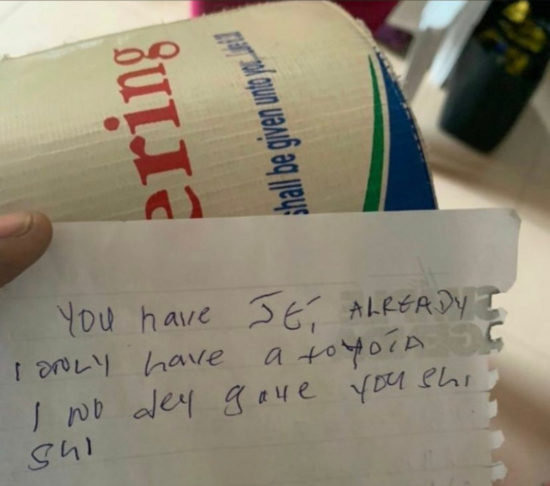 ering
shall be given unto you. Luke 6:38
YOU have JET ALREADY
I ONLY have a toyota
I NO dey gave you shi
shi